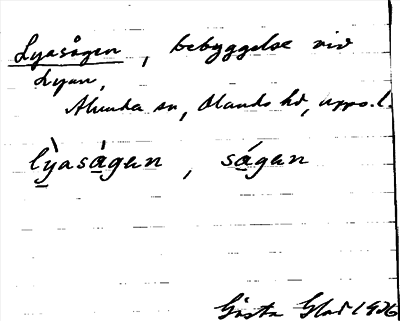 Lyasågen, bebyggelse vid
Lyan,
Alunda sn, Olands hd, Upps. l.
lỳasågεn, sågεn
Gösta Glad 1926